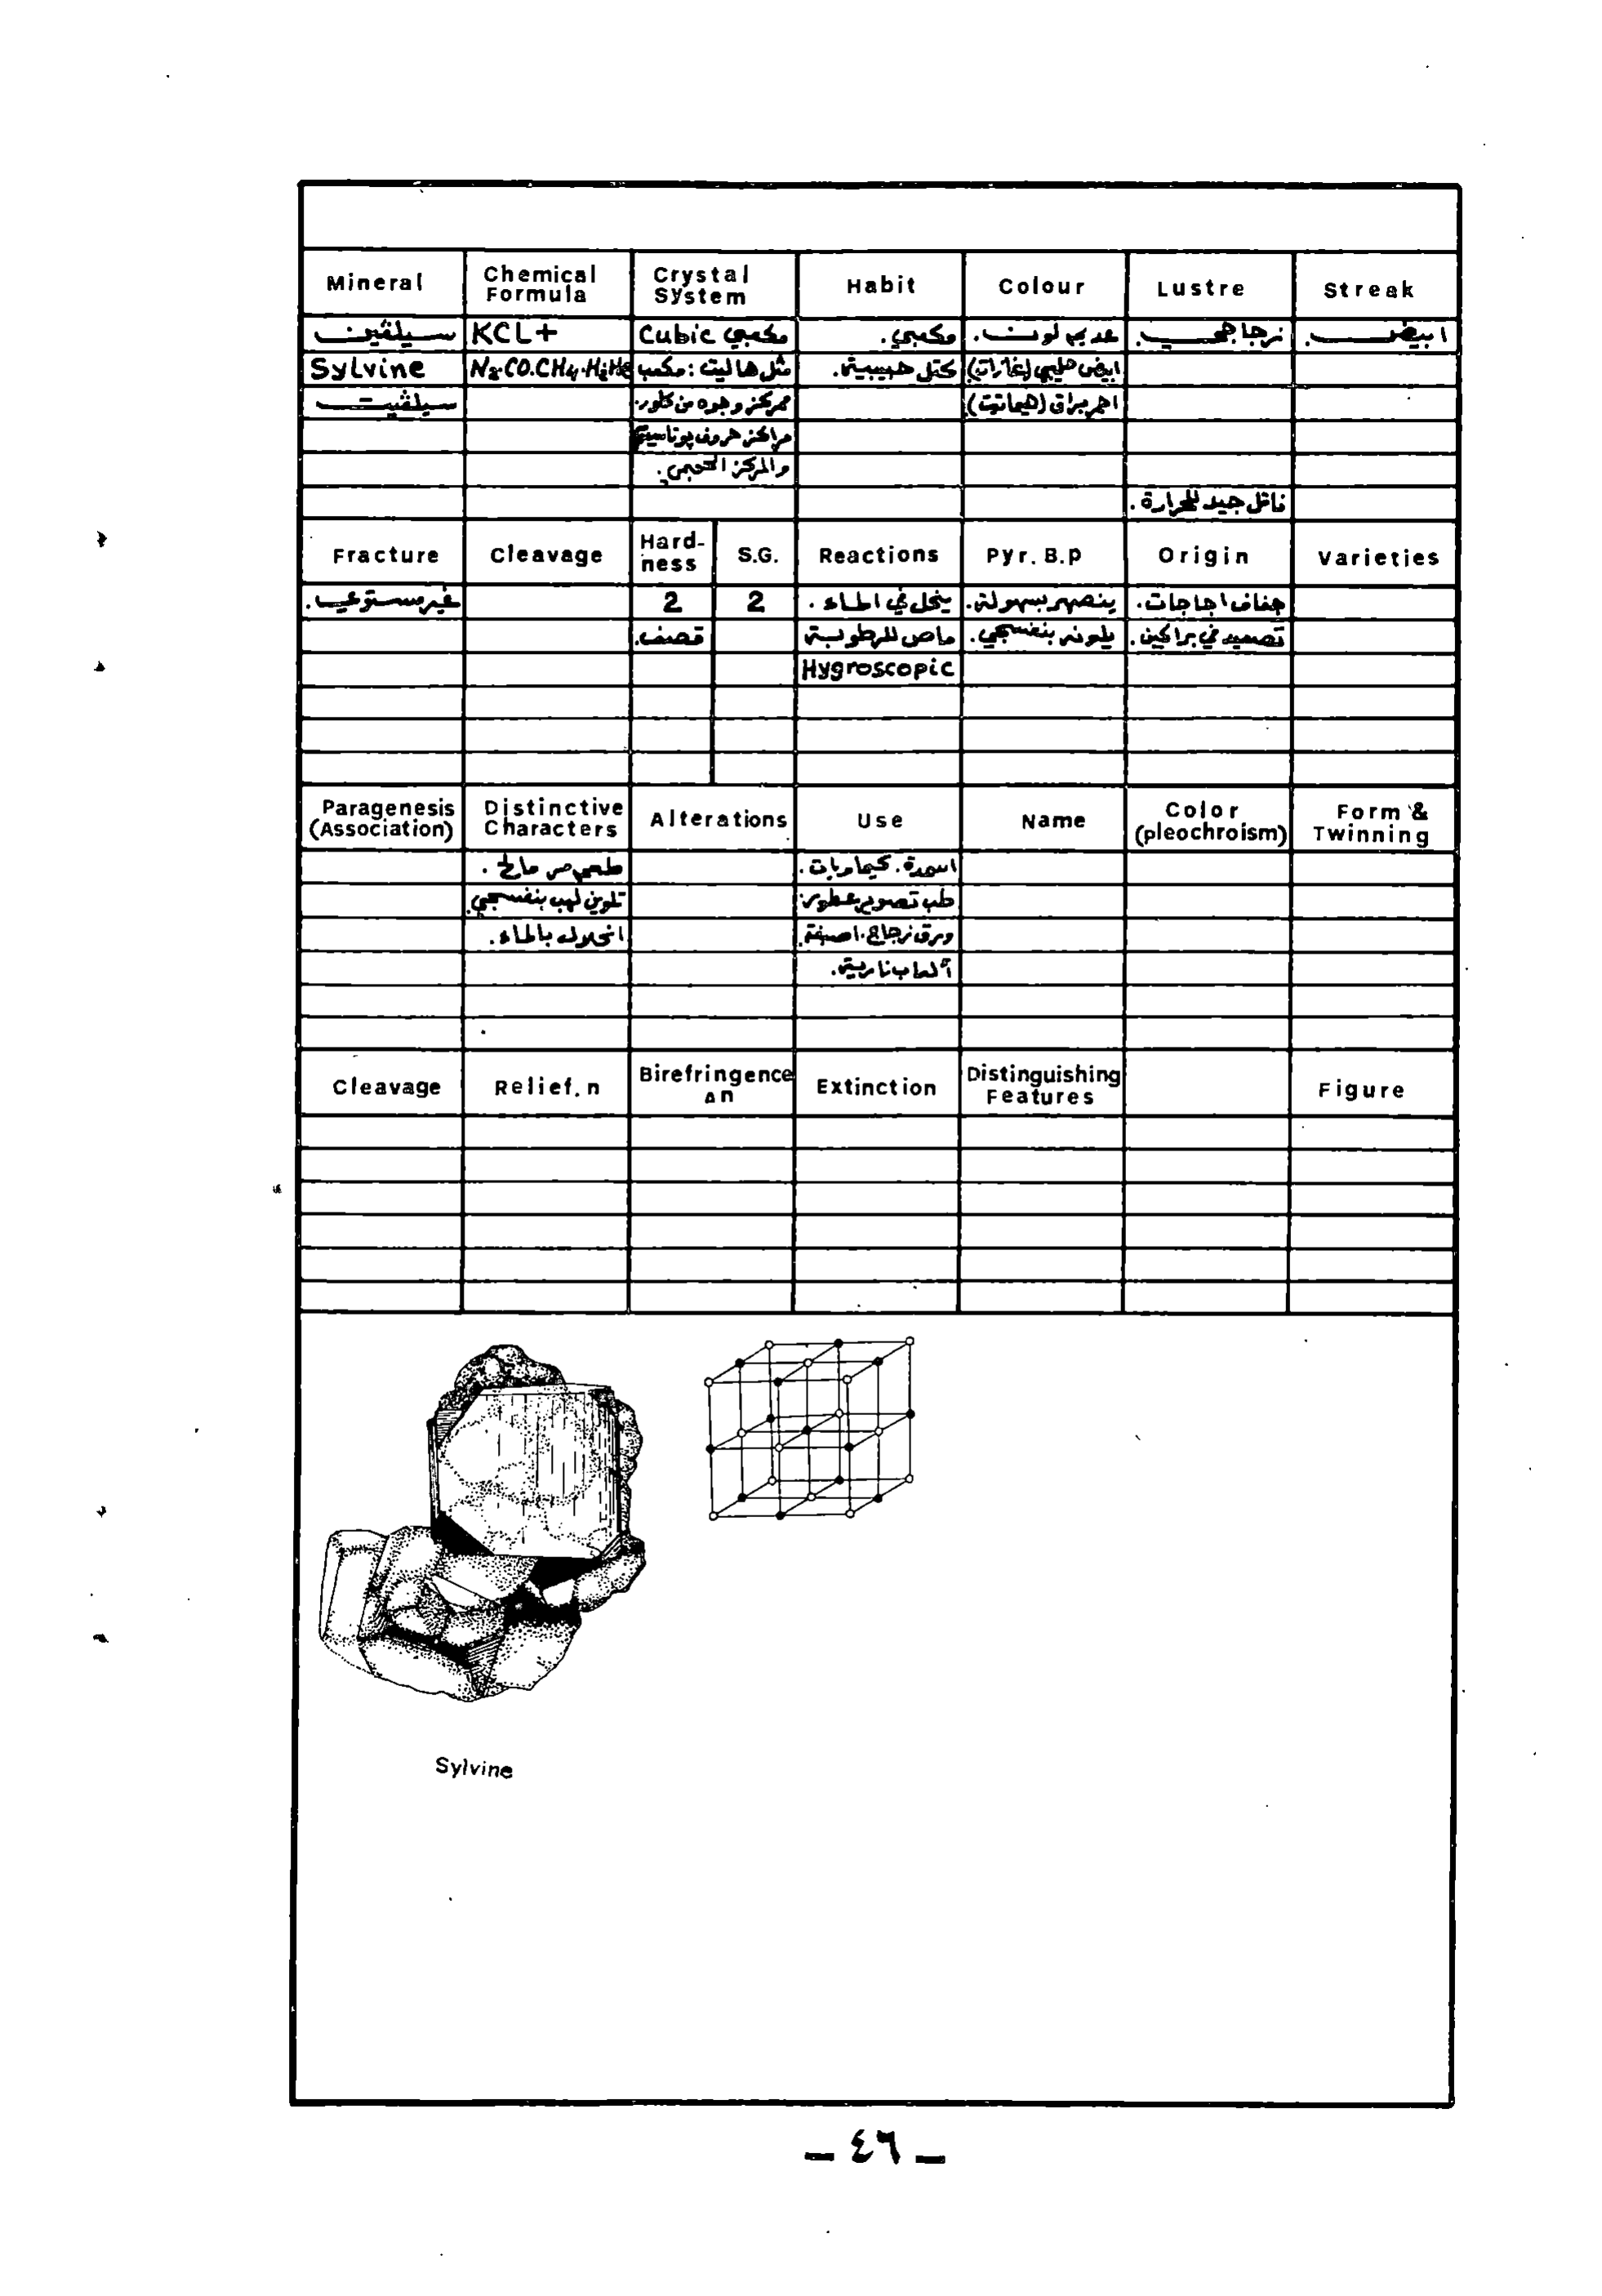 Mineral Chemical Formula Crystal System Habit Colour Lustre Streak
سيلڤين KCL+ Cubic مكعبي مكعبي. عديم لون. زجاجي. ابيض.
Sylvine N₂.CO.CH₄.H₂He مثل هاليت: مكعب كتل حبيبية. ابيض حليبي (غازات)
سيلڤيت ممركز وجوه من كلور. احمر براق (هيماتيت)
مراكز حروف پوتاسيم
والمركز الحجمي.
ناقل جيد للحرارة.
Fracture Cleavage Hard-ness S.G. Reactions Pyr. B.p Origin Varieties
غير مستوي. 2 2 ينحل في الماء. ينصهر بسهولة. جفاف اجاجات.
قصف. ماص للرطوبة يلونه بنفسجي. تصعيد في براكين.
Hygroscopic
Paragenesis (Association) Distinctive Characters Alterations Use Name Color (pleochroism) Form & Twinning
طعمي مر مالح. اسمدة. كيماويات.
تلوين لهب بنفسجي. طب تصوير عطور.
انحلاله بالماء. ورق زجاج. اصبغة.
ألعاب نارية.
Cleavage Relief. n Birefringence Δn Extinction Distinguishing Features Figure
Sylvine
_ ٤٦ _